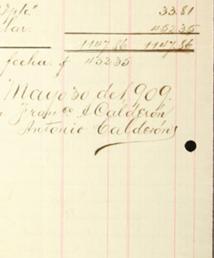 "Dpto" 33.81
" Mar. 453.35
1147.86 1147.86
fecha $ 453.35
Mayo 30 del 1909.
Franco A Calderón
Antonio Calderón